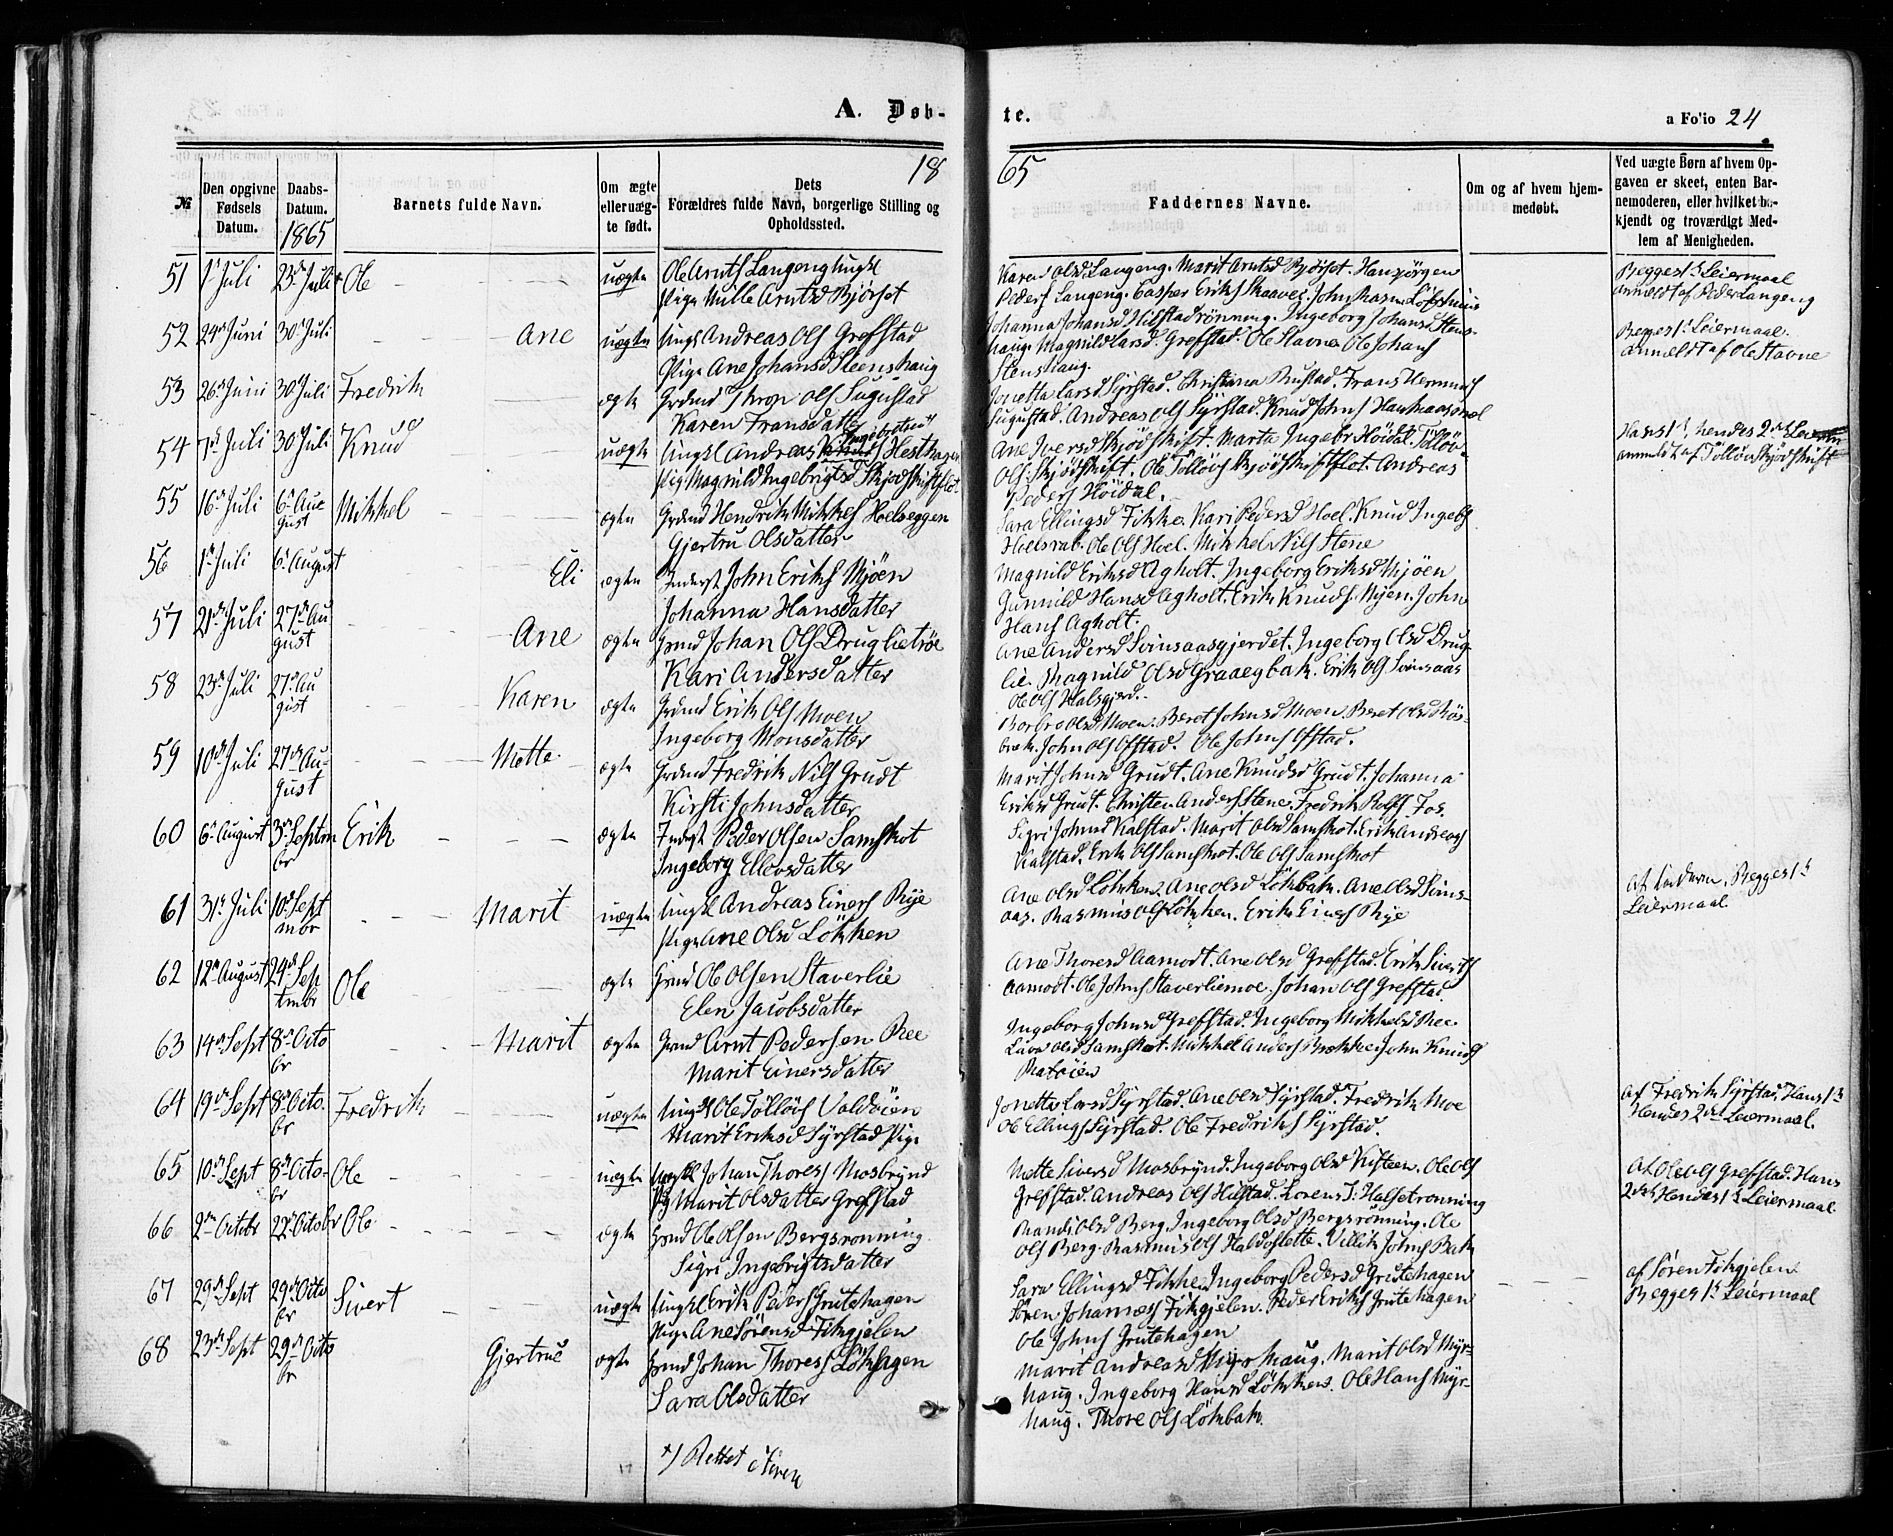 A. Døb-
te.
a Folio 24
1865
№
Den opgivne Fødsels Datum.
Daabs-Datum. 1865
Barnets fulde Navn.
Om ægte eller uæg-te født.
Dets Forældres fulde Navn, borgerlige Stilling og Opholdssted.
Faddernes Navne.
Om og af hvem hjem-medøbt.
Ved uægte Børn af hvem Op-gaven er skeet, enten Bar-nemoderen, eller hvilket be-kjendt og troværdigt Med-lem af Menigheden.
51 1 Juli 23de Juli Ole uægte Ole Arnts Langeng Ungkl
Pige Mille Arntsd Bjørset
Karen Olsd Langeng. Marit Arntsd Bjørset. Hans Jørgen
Peders Langeng. Casper Eriks Skaaver. John Rasm
Begges 1st Leiermaal
anmeldt af Peder Langeng
52 24de Juni 30te Juli Ane uægte Ungk Andreas Ols Grefstad
Pige Ane Johansd Steenshaug
Johanna Johansd Hilstadrønning. Ingeborg Johansd Stens-
haug. Magnild Larsd. Grefstad. Ole Stavne Ole Johans
Stenshaug.
Begges 1st Leiermaal.
anmeldt af Ole Stavne
53 26de Juni 30 Juli Fredrik ægte Grdmd Thron Ols Sugustad
Karen Fransdatter
Jonetta Larsd Syrstad. Christiana Rustad. Frans
Sugustad. Andreas Ols Syrstad. Knud Johns
54 7de Juli 30 Juli Knud uægte Ungkl Andreas Ingebretsen Hesthagen
Pig Magnild Ingebrigtsd Skjødskiftflot
Ane Iversd Skjødskift. Marta Ingebr Höidal. Tölløv
Ols. Skjødskift. Ole Tölløvs Skjødskiftflot. Andreas
Peders Höidal.
Hans 1st, hendes 2det Leierm
anmeldt af Tölløv Skjödskift
55 16de Juli 6te August Mikkel ægte Grdmd Hendrik Mikkels Hoelseggen
Gjertru Olsdatter
Sara Ellingsd Fikke. Kari Pedersd Hoel. Knud Ingebs
Hoelsrab. Ole Ols Hoel. Mikkel Nils Stene
56 1st Juli 6te August Eli ægte Inderst John Eriks Mjøen
Johanna Hansdatter
Magnild Eriksd Agholt. Ingeborg Eriksd Mjøen
Gunnild Hansd Agholt. Erik Knuds. Mjøen. John
Hans Agholt.
57 21de Juli 27de August Ane ægte Grmd Johan Ols Druglietrøe
Kari Andersdatter
Ane Andersd Svinsaasgjerdet. Ingeborg Olsd Drug-
lie. Magnild Olsd Graaegbak. Erik Ols Svinsaas
Ole Ols Halsgjerd.
58 23de Juli 27de August Karen ægte Grdmd Erik Ols Moen
Ingeborg Monsdatter
Borbro Olsd Moen. Beret Johnsd Moen. Beret Olsd Rös-
bak. John Ols Ofstad. Ole Johns Ofstad.
59 10de Juli 27de August Mette ægte Grdmd Fredrik Nils Grudt
Kirsti Johnsdatter
Marit Johnsd Grudt. Ane Knudsd Grudt. Johanna
Eriksd Grudt. Christen Anders Stene. Fredrik Rolfs Fos.
60 6te August 3de Septembr Erik ægte Inderst Peder Olsen Samskot
Ingeborg Ellevsdatter
Sigri Johnsd Kalstad. Marit Olsd Samskot. Erik Andreas
Kalstad. Erik Ols Samskot. Ole Ols Samskot
61 31te Juli 10de Septmbr Marit uægte Ungkl Andreas Einers Rye
Pige Ane Olsd Løkken
Ane Olsd Løkken. Ane Olsd Løkbak. Ane Olsd Svins-
aas. Rasmus Ols Løkken. Erik Einers Rye
Af Faderen, Begges 1st
Leiermaal
62 12te August 24de Septmbr Ole ægte Grmd Ole Olsen Staverlie
Elen Jacobsdatter
Ane Thoresd Aamodt. Ane Olsd Grefstad. Erik Siverts
Aamodt. Ole Johns Staverliemoe. Johan Ols Grefstad.
63 14de Sept 8de Octobr Marit ægte Grmd Arnt Pedersen Ree
Marit Einersdatter
Ingeborg Johnsd Grefstad. Ingeborg Mikkelsd Ree.
Olsd Samskot. Mikkel Anders John Knuds
64 19de Sept 8de Octobr Fredrik uægte Ungkl Ole Tölløvs Valdøien
Marit Eriksd Syrstad Pige
Jonetta Larsd Syrstad. Ane Olsd Syrstad. Fredrik Moe
Ole Ellings Syrstad. Ole Fredriks Syrstad.
Af Fredrik Syrstad, Hans 1st
Hendes 2det Leiermaal.
65 10de Sept 8de Octobr Ole uægte Ungkl Johan Thores Mosbrynd
Pig Marit Olsdatter Grefstad
Mette Siversd Mosbrynd. Ingeborg Olsd Kisteen. Ole Ols
Grefstad. Andreas Ols Hilstad. Lorens J: Halsetrønning
Af Ole Ols Grefstad. Hans
2det Hendes 1st Leiermaal
66 2den Octobr 22de Octobr Ole ægte Grmd Ole Olsen Bergsrønning
Sigri Ingebrigtsdatter
Randi Olsd Berg. Ingeborg Olsd Bergsrønning. Ole
Ols Berg. Rasmus Ols Haldoslette. Villik Johns Bak
67 29de Sept 29de Octobr Sivert uægte Ungkl Erik Peders Grutehagen
Pige Ane Sörensd Fikkjelen
Sara Ellingsd Fikke. Ingeborg Pedersd Grutehagen
Sören Johannes Fikgjelen. Peder Eriks Grutehagen
Ole Johns Grutehagen
af Sören Fikgjelen
Begges 1st Leiermaal
68 23de Sept 29de Octobr Gjertrue ægte Grmd Johan Thores Løkhagen
Sara Olsdatter
Marit Andreasd Myrhaug. Marit Olsd Myr-
haug. Ingeborg Hansd Løkken. Ole Hans Myr-
haug. Thore Ols Løkbak.
+) Rettet